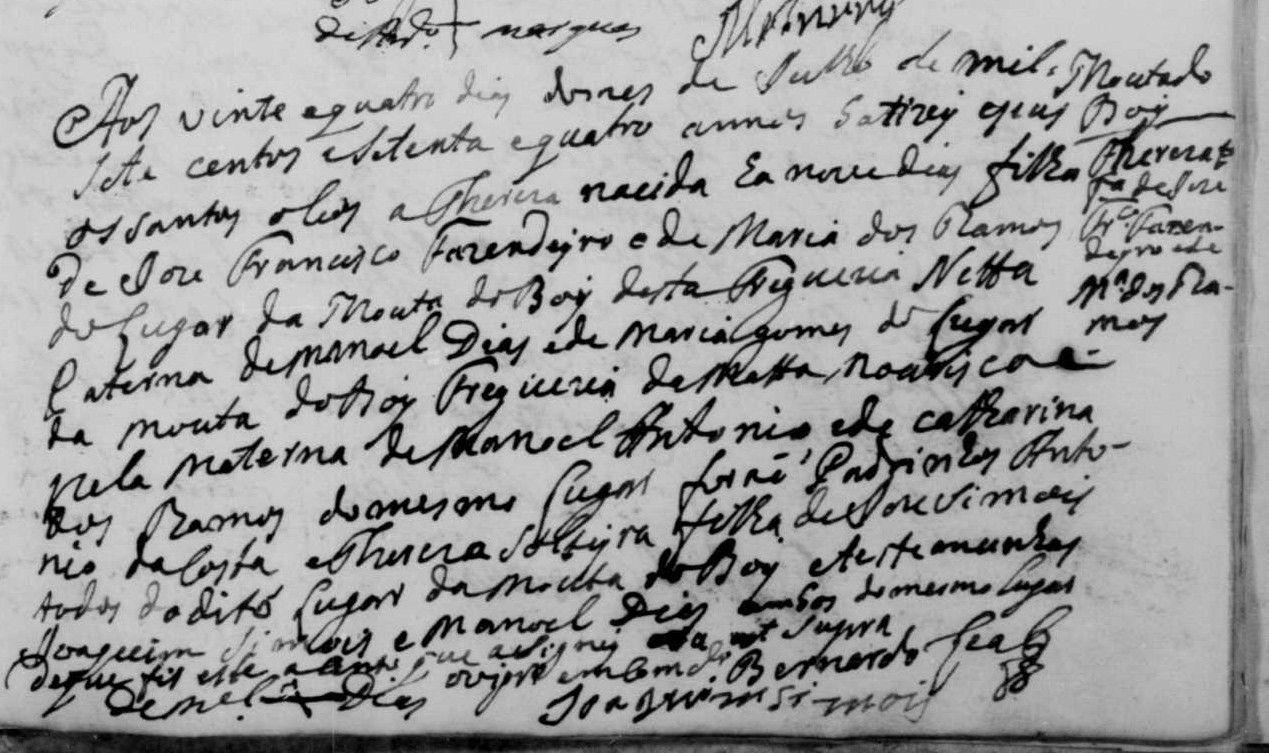 marques
Aos vinte equatro dias domes de Julho de mil
sete centos esetenta equatro annos Batizey epus
os santos oleos a Thereza nacida ha nove dias filha
De Joze Francisco Fazendeyro e de Maria dos Ramos
do Lugar da Mouta do Boy desta Freguezia Netta
Paterna de Manoel Dias e de Maria gomes do Lugar
da mouta do Boy Freguezia da Matta
pela Materna de Manoel Antonio ede catharina
dos Ramos do mesmo Lugar forão Padrinhos Anto-
nio da Costa e Thereza Solteyra filha de Joze Simois
todos do dito Lugar da Mouta do Boy e testemunhas
Joaqueim Simois e Manoel Dias ambos do mesmo Lugar
de que fis este que asigney ut supra
Bernardo Leal
Dias Joaquim Simois
Moutado
Boy
Thereza
fa de Joze
Frco Fazen-
deyro e de
Ma dos Ra-
mos